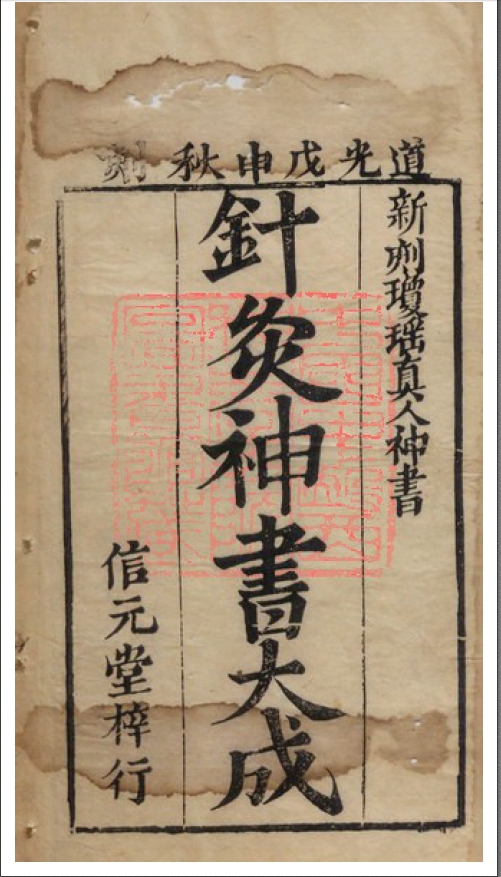 道光戊申秋刻
新刻瓊瑤真人神書
針灸神書大成
信元堂梓行